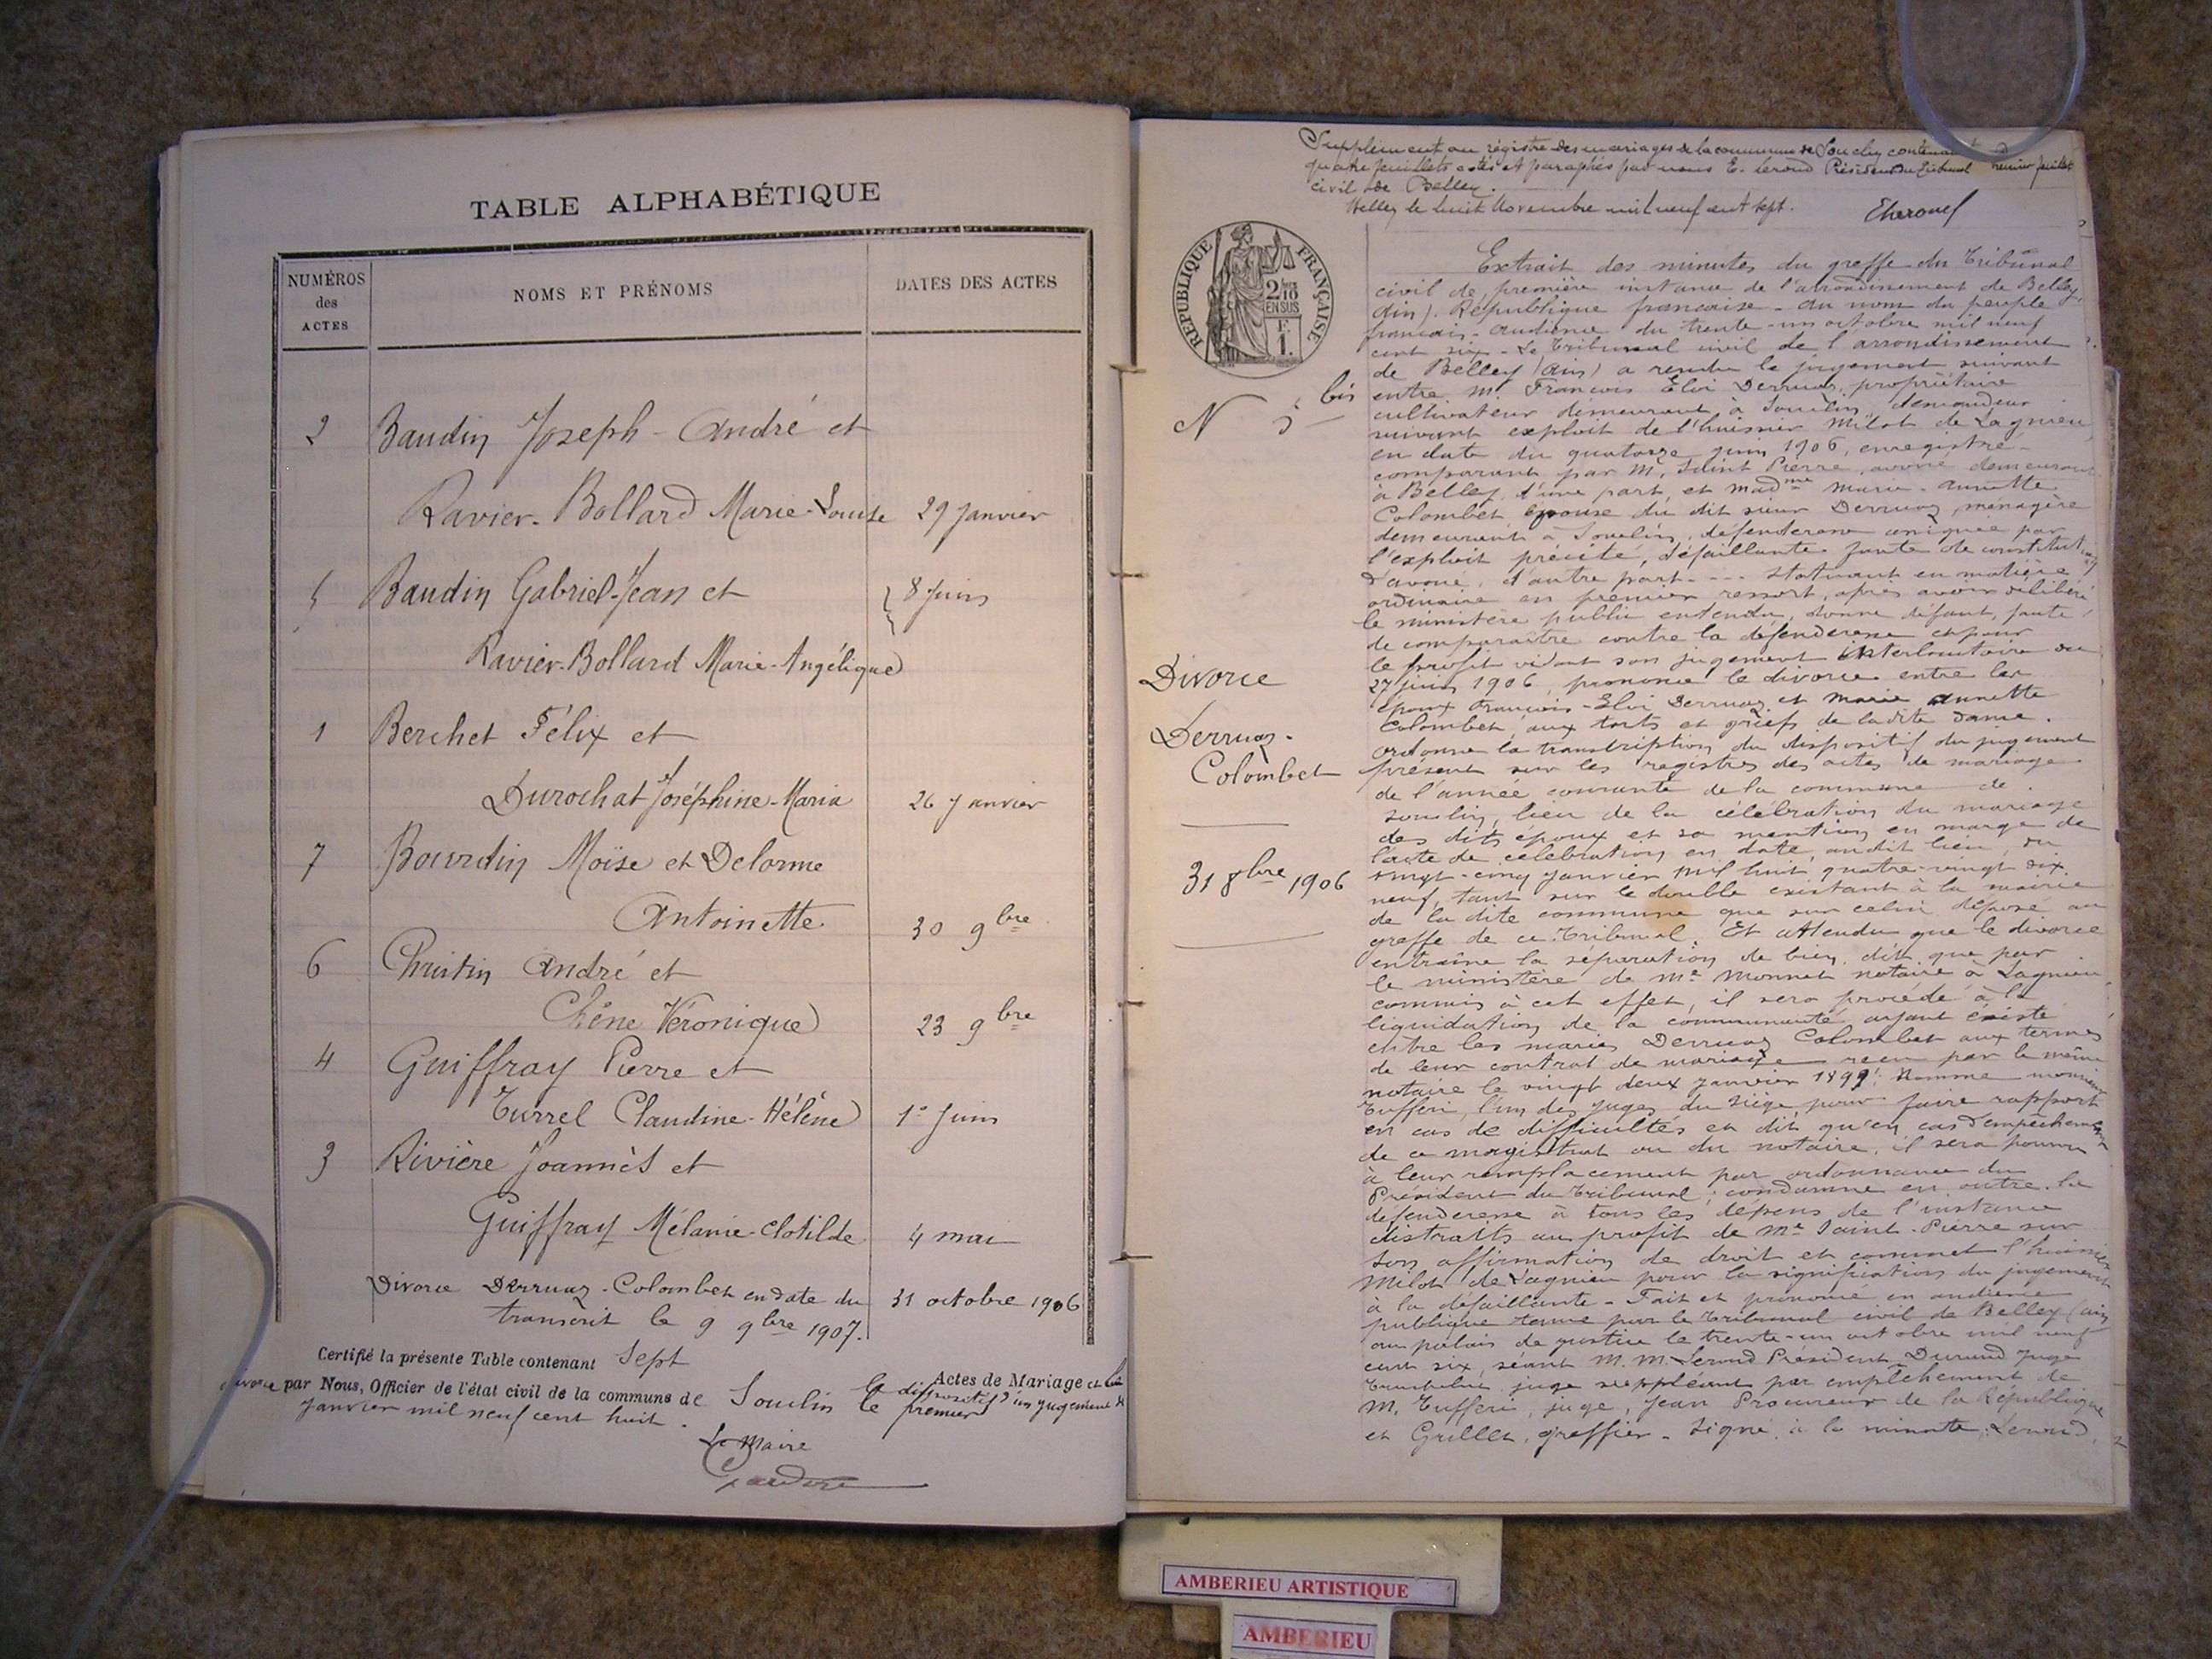 TABLE ALPHABÉTIQUE
NUMÉROS
des
ACTES
NOMS ET PRÉNOMS
DATES DES ACTES
2 Baudin Joseph-André et
Ravier-Bollard Marie-Louise 29 Janvier
5 Baudin Gabriel-Jean et 8 Juin
Ravier-Bollard Marie-Angélique
1 Berchet Félix et
Durochat Joséphine-Maria 26 Janvier
7 Bourdin Moïse et Delorme
Antoinette 30 9bre
6 Christin André et
Chêne Véronique 23 9bre
4 Guiffray Pierre et
Turrel Claudine-Hélène 1er Juin
3 Rivière Joannès et
Guiffray Mélanie-Clotilde 4 mai
Divorce Derruaz-Colombet en date du 31 octobre 1906
transcrit le 9 9bre 1907.
Certifié la présente Table contenant Sept Actes de Mariage et le
le dispositif d'un jugement de
divorce par Nous, Officier de l'état civil de la commune de Souclin le premier
Janvier mil neuf cent huit.
Le Maire
Supplément au régistre des mariages de la commune de Souclin contenant
quatre feuillets cotés et paraphés par nous E. Leroud Président du Tribunal Premier feuillet
civil de Belley.
Belley le huit Novembre mil neuf cent sept.
RÉPUBLIQUE FRANÇAISE
2/10
EN SUS
F.
1.
N 5 bis
Divorce
Derruaz-
Colombet
31 8bre 1906
Extrait des minutes du greffe du Tribunal
civil de première instance de l'arrondissement de Belley,
(Ain). République française - Au nom du peuple
français - Audience du trente-un octobre mil neuf
cent six - Le Tribunal civil de l'arrondissement
de Belley (Ain) a rendu le jugement suivant
entre M. François Eloi Derruaz, propriétaire
cultivateur demeurant à Souclin, demandeur
suivant exploit de l'huissier Milot de Lagnieu
en date du quatorze juin 1906, enregistré -
comparant par Me Saint Pierre, avoué demeurant
à Belley, d'une part, et Madme Marie-Annette
Colombet épouse du dit sieur Derruaz, ménagère
demeurant à Souclin, défenderesse assignée par
l'exploit précité, défaillante faute de constitution
d'avoué, d'autre part --- Statuant en matière
ordinaire en premier ressort, après avoir délibéré
le ministère public entendu, donne défaut, faute
de comparaître contre la défenderesse et pour
le profit vidant son jugement interlocutoire du
27 juin 1906, prononce le divorce entre les
époux François-Eloi Derruaz et Marie Annette
Colombet, aux torts et griefs de ladite dame.
Ordonne la transcription du dispositif du jugement
présent sur les registres des actes de mariage
de l'année courante de la commune de
Souclin, lieu de la célébration du mariage
des dits époux et sa mention en marge de
l'acte de célébration en date, audit lieu, du
vingt-cinq janvier mil huit quatre-vingt dix
neuf, tant sur le double existant à la mairie
de la dite commune que sur celui déposé au
greffe de ce Tribunal. Et attendu que le divorce
entraîne la séparation de bien, dit que par
le ministère de Me Monnet notaire à Lagnieu
commis à cet effet, il sera procédé à la
liquidation de la communauté ayant existé
entre les mariés Derruaz Colombet aux termes
de leur contrat de mariage reçu par le même
notaire le vingt deux janvier 1899. Nomme monsieur
Tufferi, l'un des juges du siège, pour faire rapport
en cas de difficultés et dit qu'en cas d'empêchement
de ce magistrat ou du notaire, il sera pourvu
à leur remplacement par ordonnance du
Président du Tribunal; condamne en outre la
défenderesse à tous les dépens de l'instance
distraits au profit de Me Saint-Pierre sur
son affirmation de droit et commet l'huissier
Milot de Lagnieu pour la signification du jugement
à la défaillante - Fait et prononcé en audience
publique tenue par le Tribunal civil de Belley (Ain
au palais de justice le trente-un octobre mil neuf
cent six, séant M.M. Leroud Président, Durand Juge
juge suppléant par empêchement de
M. Tufferi, juge, Jean Procureur de la République
et Grillet, greffier - Signé à la minute: Leroud,
AMBERIEU ARTISTIQUE
AMBERIEU